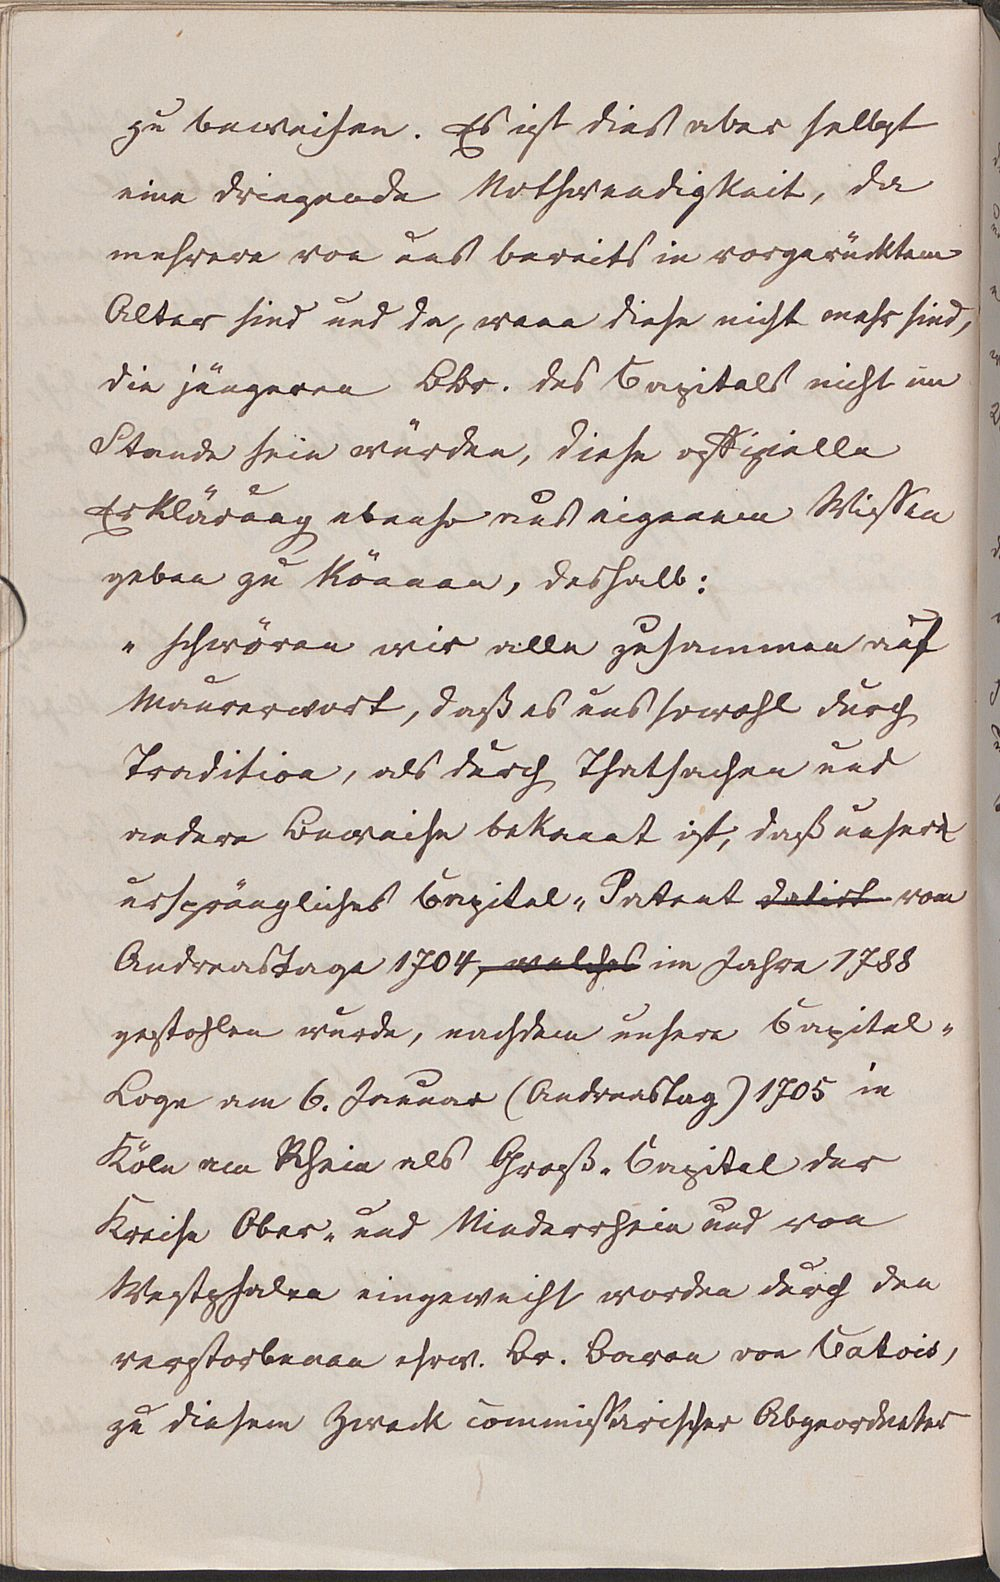 zu beweisen. Es ist dies aber selbst
eine dringende Nothwendigkeit, da
mehrere von uns bereits in vorgerücktem
Alter sind und da, wenn diese nicht mehr sind,
die jüngeren Bbr. des Capitels nicht im
Stande sein würden, diese offizielle
Erklärung ebenso aus eigenem Wissen
geben zu können, deshalb:
„ schwören wir alle zusammen auf
Maurerwort, daß es uns sowohl durch
Tradition, als durch Thatsachen und
andere Beweise bekannt ist, daß unser
ursprüngliches Capitel-Patent datirt vom
Andreastage 1704, welches im Jahre 1788
gestohlen wurde, nachdem unsere Capitel-
Loge am 6. Januar (Andreastag) 1705 in
Köln am Rhein als Groß-Capitel der
Kreise Ober- und Niederrhein und von
Westphalen eingeweiht worden durch den
verstorbenen ehrw. Br. Baron von Catois,
zu diesem Zweck commissarischer Abgeordneter